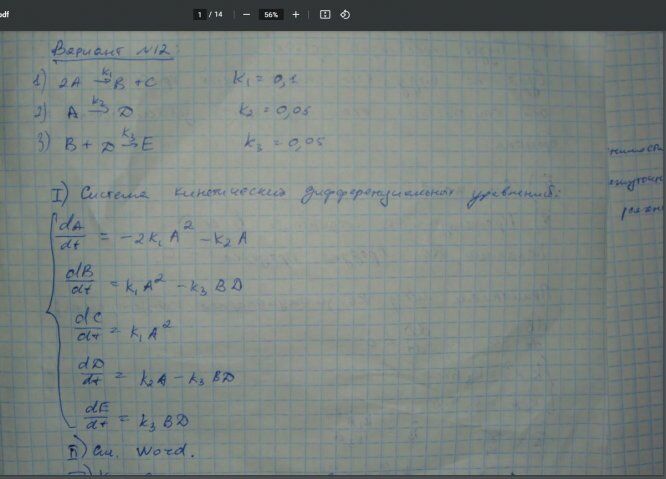 pdf
1 / 14
56%
Вариант №12:
1) 2A →k₁ B + C k₁ = 0,1
2) A →k₂ D k₂ = 0,05
3) B + D →k₃ E k₃ = 0,05
I) Система кинетических дифференциальных уравнений:
dA/dt = -2k₁A² - k₂A
dB/dt = k₁A² - k₃BD
dC/dt = k₁A²
dD/dt = k₂A - k₃BD
dE/dt = k₃BD
II) См. Word.